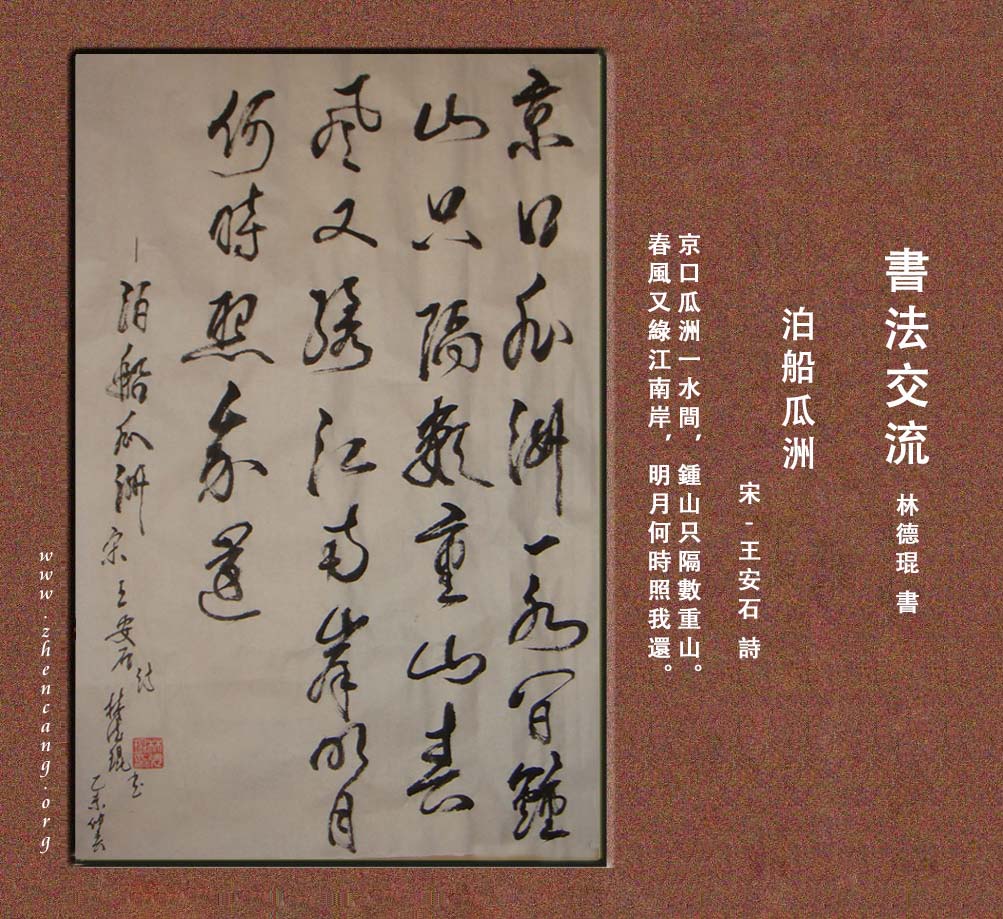 書法交流 林德琨 書
泊船瓜洲
宋 - 王安石 詩
京口瓜洲一水間，鍾山只隔數重山。
春風又綠江南岸，明月何時照我還。
京口瓜洲一水間鍾
山只隔數重山春
風又綠江南岸明月
何時照我還
泊船瓜洲 宋王安石詩 林德琨書
乙未仲春
www.zhencang.org